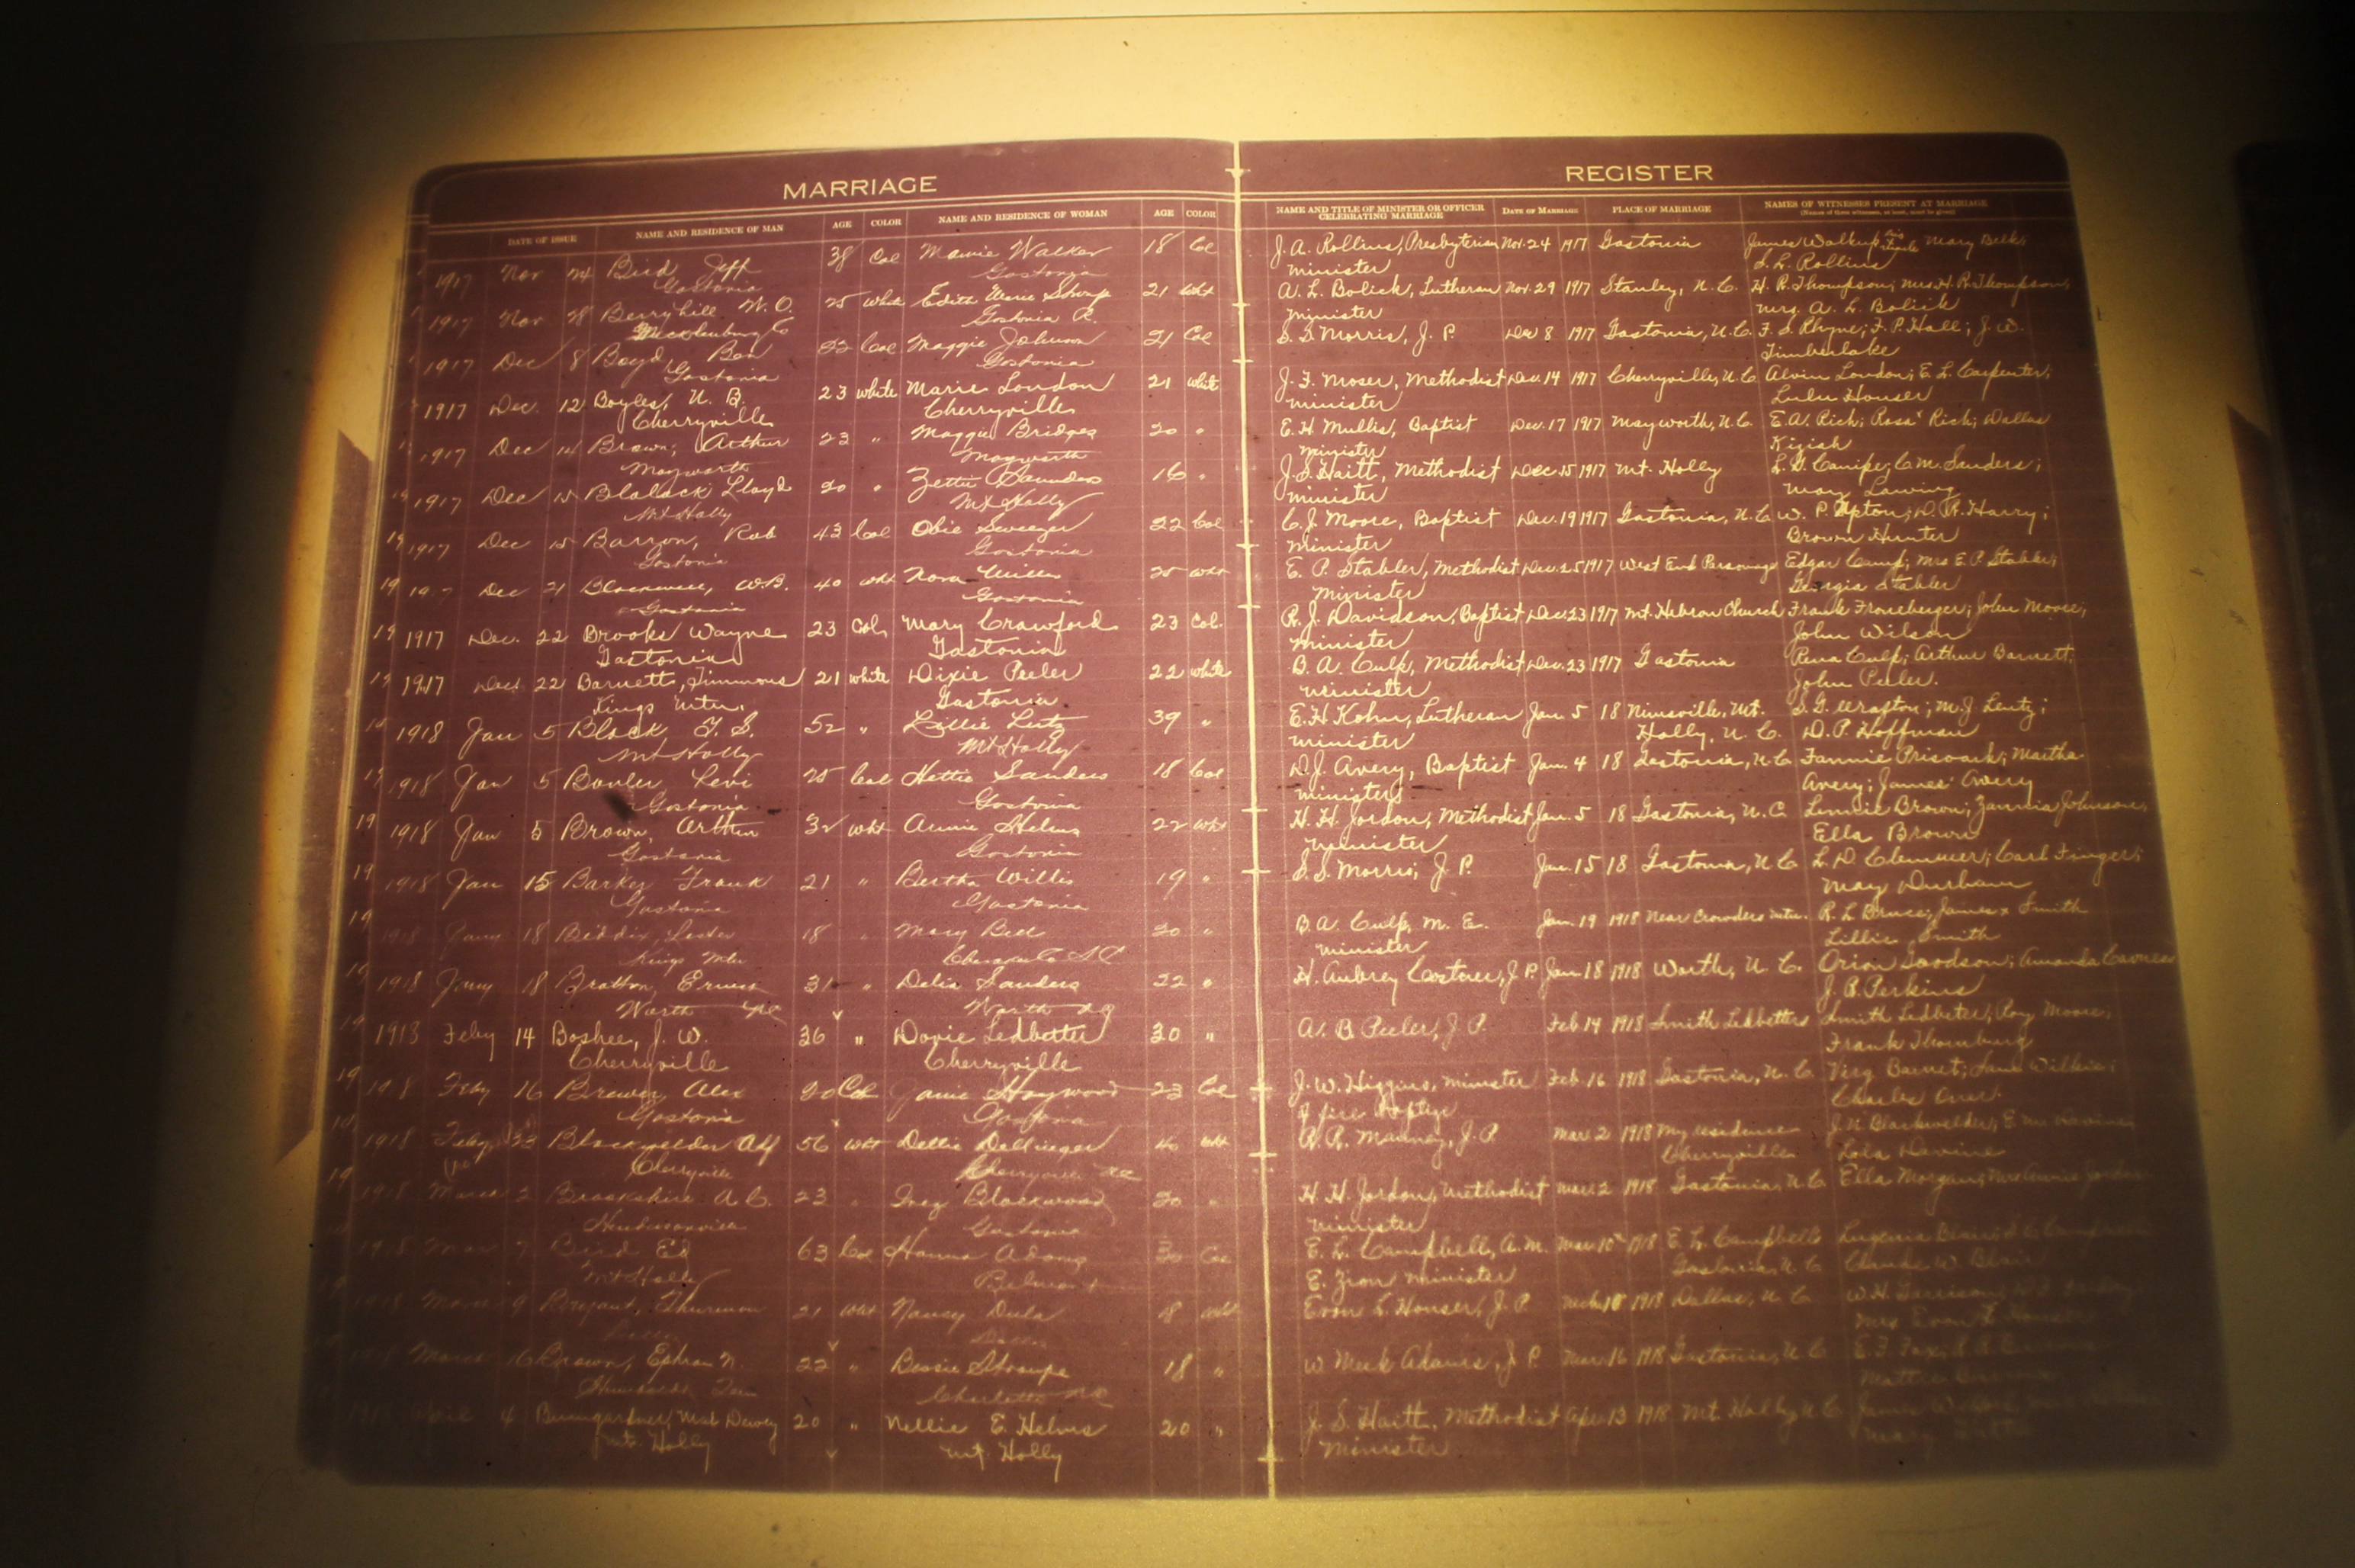 MARRIAGE
REGISTER
DATE OF ISSUE NAME AND RESIDENCE OF MAN AGE COLOR NAME AND RESIDENCE OF WOMAN AGE COLOR
NAME AND TITLE OF MINISTER OR OFFICER CELEBRATING MARRIAGE DATE OF MARRIAGE PLACE OF MARRIAGE NAMES OF WITNESSES PRESENT AT MARRIAGE
(Names of three witnesses, at least, must be given)
1917 Nov 24 Bird Jeff 38 Col Mamie Walker 18 Col J. A. Rollins, Presbyterian Nov. 24 1917 Gastonia James Walkup Mary Belk;
Gastonia Gastonia minister S. L. Rollins
1917 Nov 28 Berryhill W. O. 25 white Edith 21 wht A. L. Bolick, Lutheran Nov. 29 1917 Stanley, N. C. H. R. Thompson; Mrs. H. R. Thompson,
Mecklenburg Co Gastonia R. minister Mrs. A. L. Bolick
1917 Dec 8 Boyd, Ben 22 Col Maggie Johnson 21 Col S. S. Morris, J. P. Dec 8 1917 Gastonia, N. C. F. S. Rhyne; F. P. Hall; J. W.
Gastonia Gastonia Timberlake
1917 Dec. 12 Boyles, N. B. 23 white Marie London 21 white J. F. Moser, Methodist Dec. 14 1917 Cherryville, N. C. Alvin London; E. L. Carpenter;
Cherryville Cherryville minister Lulu Houser
1917 Dec 14 Brown, Arthur 23 " Maggie Bridges 20 " E. H. Mullis, Baptist Dec. 17 1917 Mayworth, N. C. E. A. Rich; Rosa Rich; Dallas
Mayworth Mayworth minister Kiziah
1917 Dec 15 Blalock Lloyd 20 " Zettie Saunders 16 " J. S. Haitt, Methodist Dec. 15 1917 Mt. Holly C. M. Sanders;
Mt Holly Mt Holly minister Mary Lawing
1917 Dec 15 Barron, Rob 43 Col Obie 22 Col C. J. Moore, Baptist Dec. 19 1917 Gastonia, N. C. W. P. Upton; D. R. Harry;
Gastonia Gastonia minister Brown Hunter
Dec 21 Blackwell, W. B. 40 wht Nora 25 wht E. P. Stabler, Methodist Dec. 25 1917 West End Parsonage Edgar Camp; Mrs E. P. Stabler;
Gastonia Gastonia minister Georgia Stabler
1917 Dec. 22 Brooks Wayne 23 Col. Mary Crawford 23 Col. R. J. Davidson, Baptist Dec. 23 1917 Mt. Hebron Church Frank Froneberger; John Moore;
Gastonia Gastonia minister John Wilson
1917 Dec. 22 Barnett, Timmons 21 white Dixie Peeler 22 white B. A. Culp, Methodist Dec. 23 1917 Gastonia Rena Culp; Arthur Barnett;
Kings Mtn. Gastonia minister John Peeler.
1918 Jan 5 Black, 52 " Lillie Lentz 39 " E. H. Kohn, Lutheran Jan. 5 18 Nimsville, Mt. M. J. Lentz;
Mt Holly Mt Holly minister Holly, N. C. D. P. Hoffman
1918 Jan 5 Levi 25 Col Hettie Sanders 18 Col D. J. Avery, Baptist Jan. 4 18 Gastonia, N. C. Fannie Martha
Gastonia Gastonia minister Avery; James Avery
1918 Jan 5 Brown, Arthur 32 wht Annie Helms 22 wht H. H. Jordon, Methodist Jan. 5 18 Gastonia, N. C. Brown; Johnson;
Gastonia Gastonia minister Ella Brown
1918 Jan 15 Barker Frank 21 " Bertha Willis 19 " S. S. Morris, J. P. Jan. 15 18 Gastonia, N. C. L. D. Clemmer; Carl Finger;
Gastonia Gastonia May Durham
1918 Jany 18 Biddix, Lester 18 " Mary Bell 20 " B. A. Culp, M. E. Jan. 19 1918 Near Crowders Mtn. R. L. Bruce; James x Smith
Kings Mtn Cherokee Co S. C. minister Lillie Smith
1918 Jany 18 Bratton, Ernest 31 " Delia Sanders 22 " H. Aubrey Costner, J. P. Jan. 18 1918 Worth, N. C. Orion Goodson; Amanda
Worth NC Worth NC J. B. Perkins
1918 Feby 14 Boshee, J. W. 36 " Dovie Ledbetter 30 " A. B. Peeler, J. P. Feb 14 1918 Smith Ledbetters Smith Ledbetter; Roy Moore;
Cherryville Cherryville Frank Thornburg
1918 Feby 16 Brewer, Alex 20 Col Janie Haywood 23 Col J. W. Higgins, minister Feb. 16 1918 Gastonia, N. C. Virg Barnet; Wilkie;
Gastonia Gastonia Charles
1918 Feby 23 Blackwelder 56 wht Dellie Dellinger 40 wht R. R. Mauney, J. P. Mar. 2 1918 My residence J. N. Blackwelder;
Cherryville Cherryville NC Cherryville Lola
1918 March 2 Brookshire A. C. 23 " Blackwood 20 " H. H. Jordon, Methodist Mar. 2 1918 Gastonia, N. C. Ella Morgan; Mrs Annie Jordon
Hendersonville Gastonia minister
1918 Mar 7 Bird Ed 63 Col Hanna Adams 30 Col E. L. Campbell, A. M. Mar. 10 1918 E. L. Campbells Eugenia Blair;
Mt Holly Belmont E. Zion minister Gastonia, N. C. Claude W. Blair
1918 March 9 Bryant, Thurmon 21 wht Nancy Dula 18 wht Evon L. Houser, J. P. 1918 Dallas, N. C. W. H. Garrison;
Dallas Dallas Mrs Evon L. Houser
March 16 Brown, Ephram N. 22 " Bessie Stroupe 18 " W Meek Adams, J. P. Mar. 16 1918 Gastonia, N. C.
Charlotte NC Mattie
April 4 Bumgardner, Dewey 20 " Nellie E. Helms 20 " J. S. Haitt, Methodist Apr. 13 1918 Mt. Holly, N. C. James
Mt. Holly Mt. Holly minister Mary